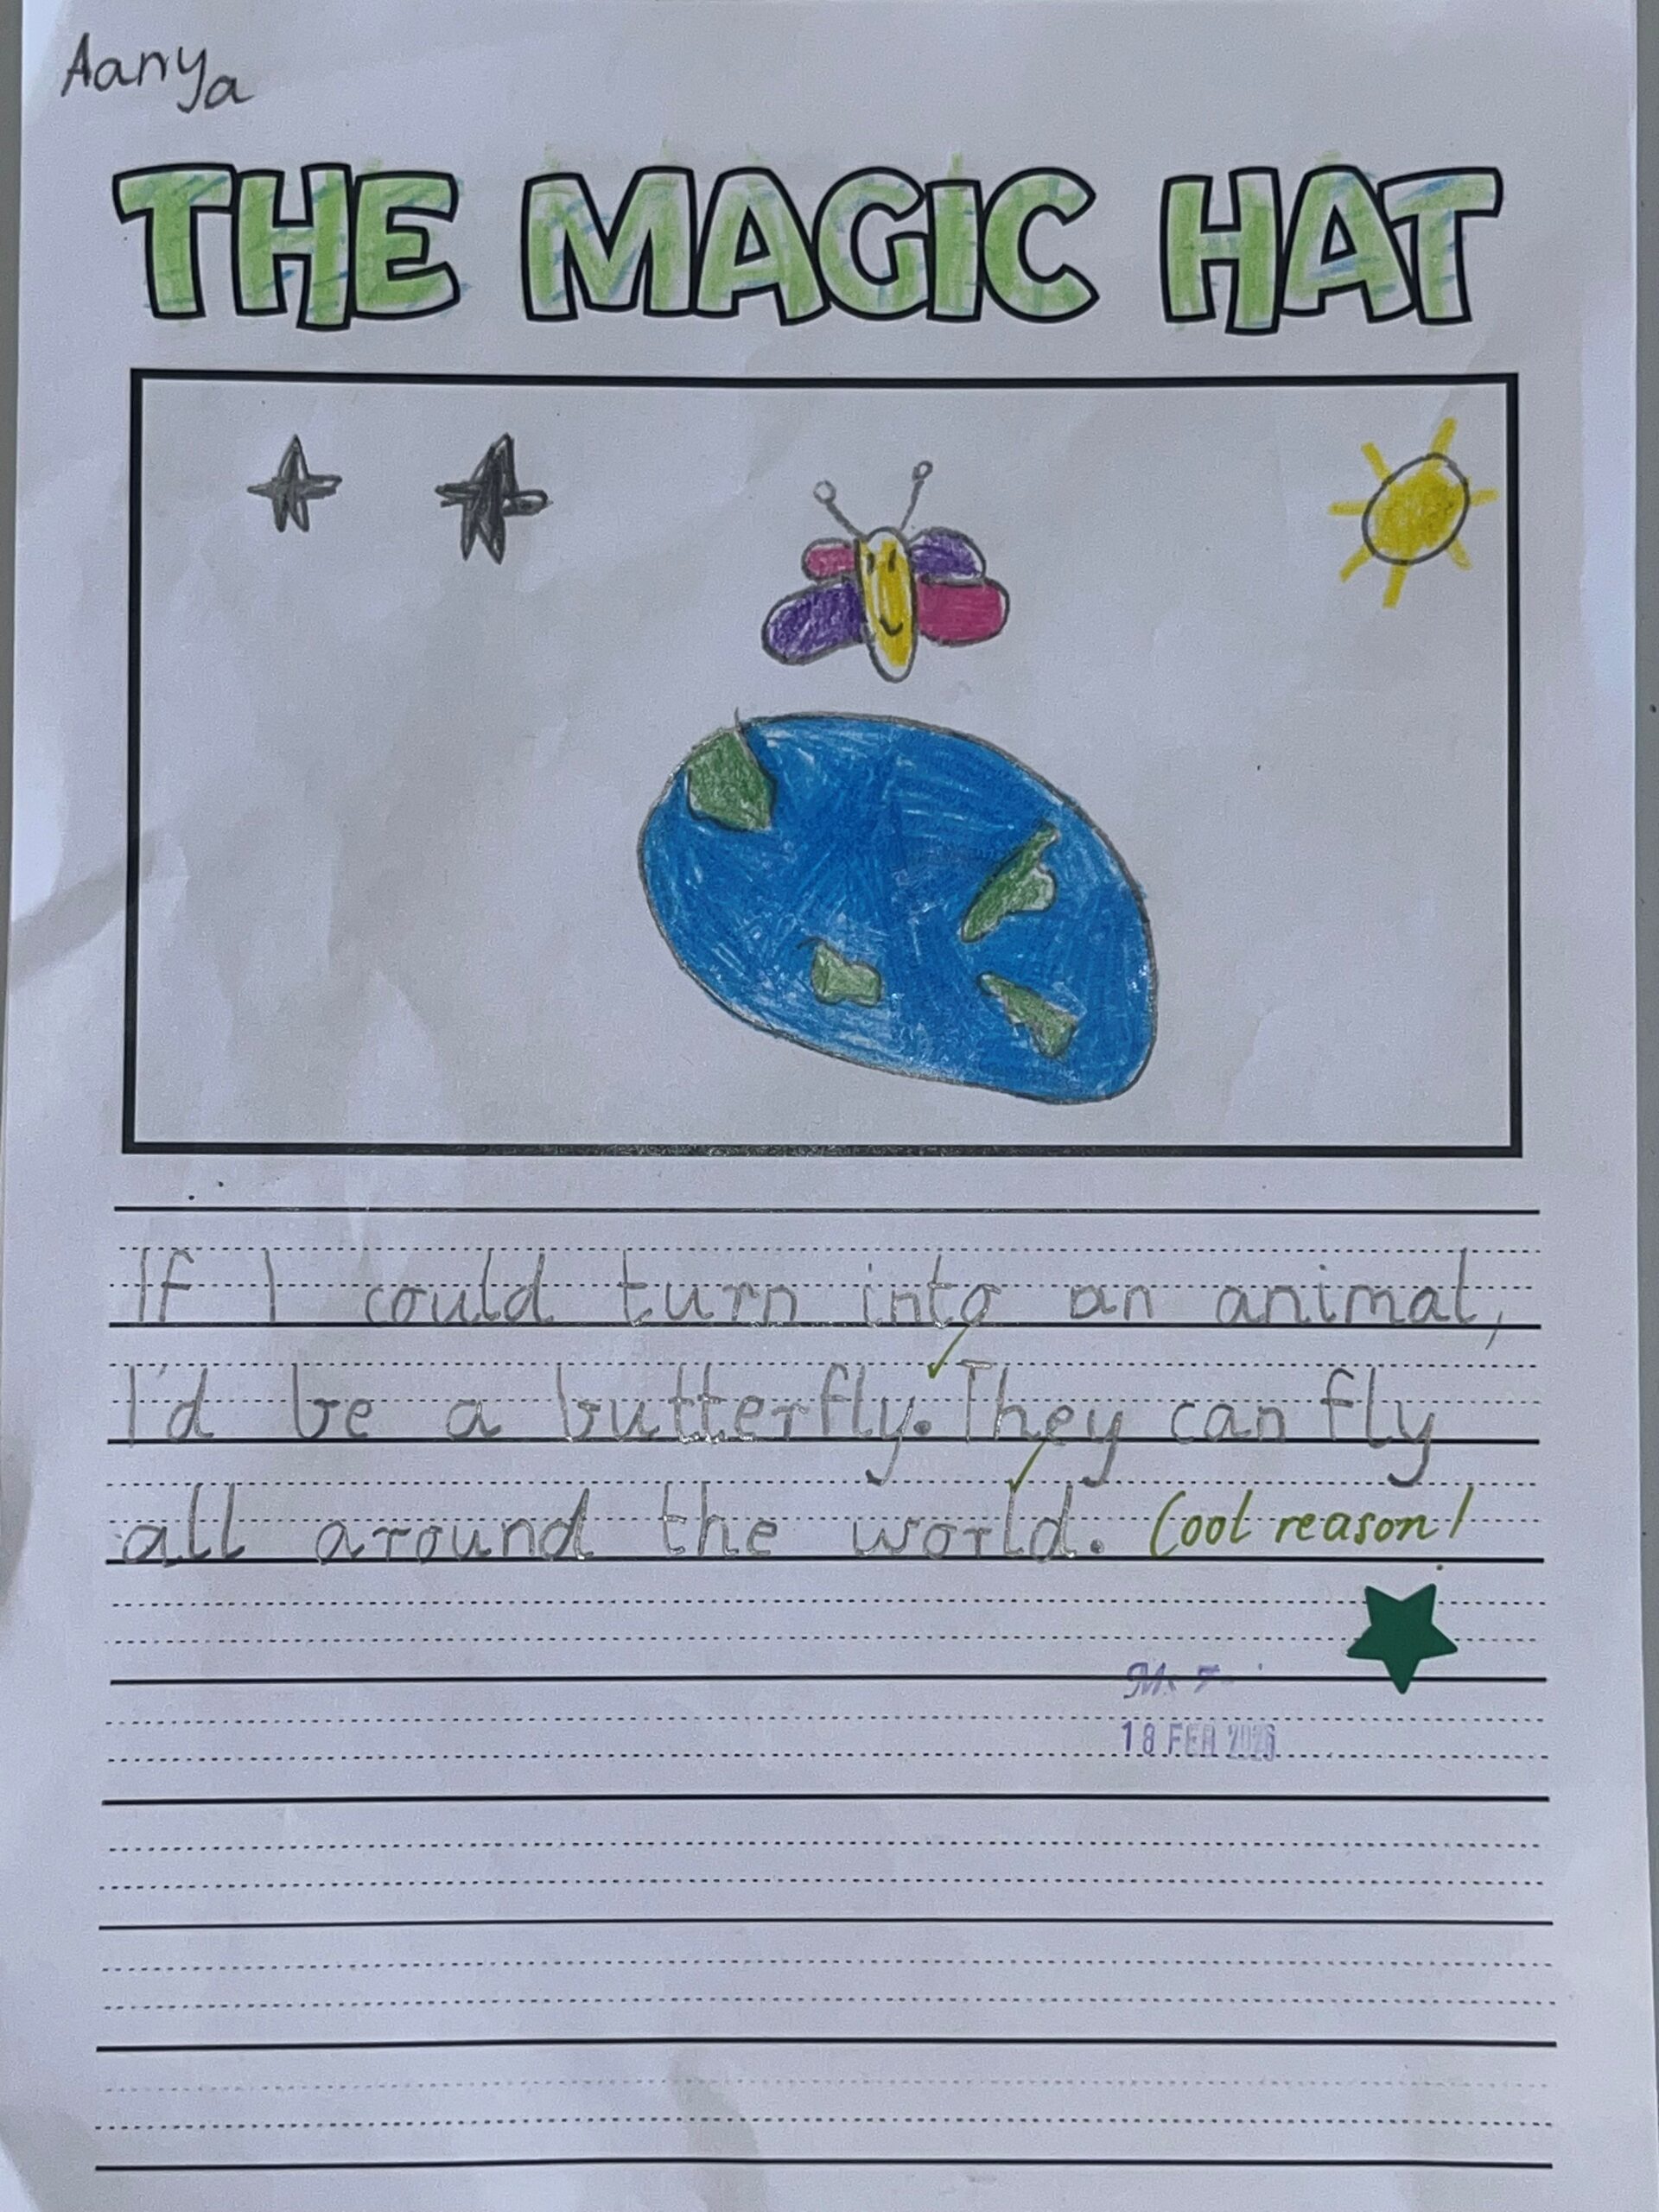 Aanya
THE MAGIC HAT
If I could turn into an animal,
I'd be a butterfly. They can fly
all around the world. Cool reason!
18 FEB 2026